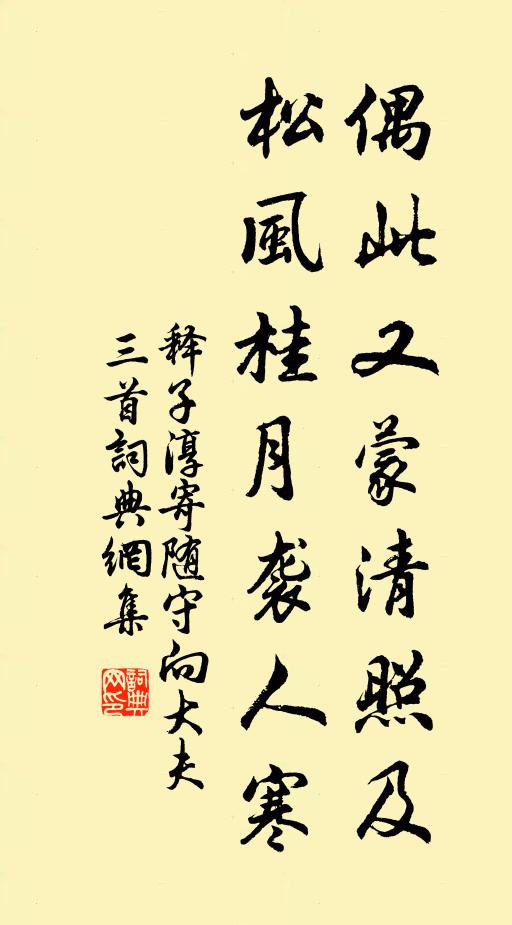 偶此又蒙清照及
松風桂月袭人寒
释子淳寄随守向大夫
三首詞典網集
詞典
网印